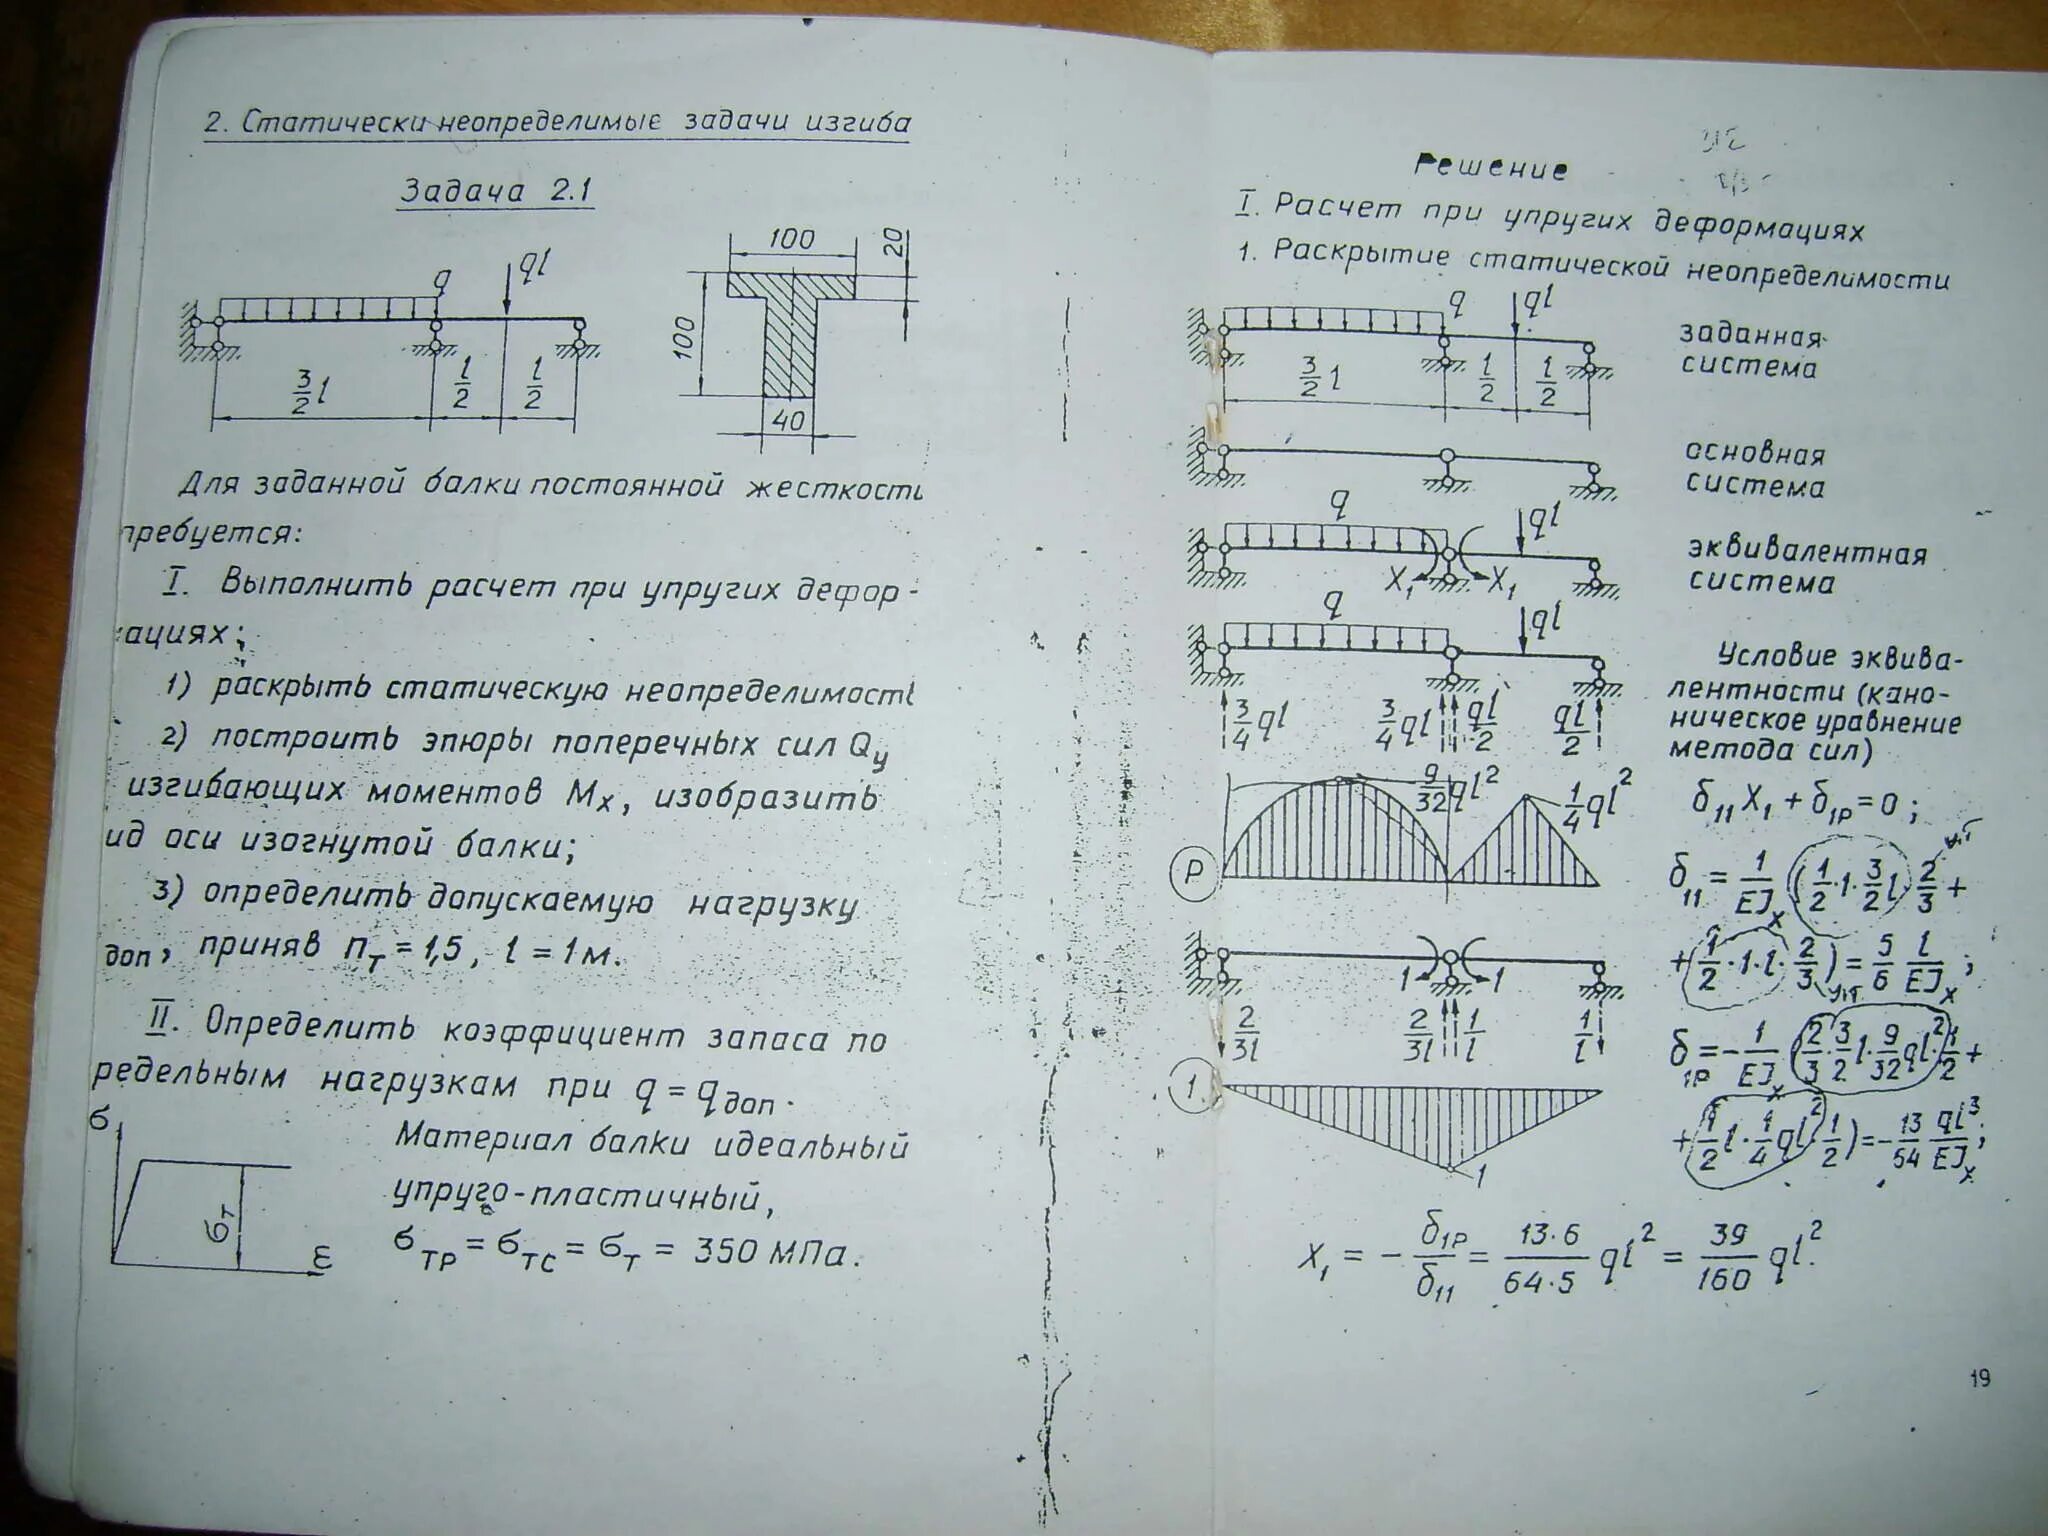 2. Статически неопределимые задачи изгиба
Задача 2.1
q
ql
3/2 l
l/2
l/2
100
20
100
40
Для заданной балки постоянной жесткость
требуется:
I. Выполнить расчет при упругих дефор-
мациях;
1) раскрыть статическую неопределимость
2) построить эпюры поперечных сил Qy
изгибающих моментов Mx, изобразить
ид оси изогнутой балки;
3) определить допускаемую нагрузку
доп, приняв nт = 1,5, l = 1 м.
II. Определить коэффициент запаса по
редельным нагрузкам при q = qдоп.
Материал балки идеальный
упруго-пластичный,
σтр = σтс = σт = 350 МПа.
σ
σт
ε
Решение
I. Расчет при упругих деформациях
1. Раскрытие статической неопределимости
q
ql
3/2 l
l/2
l/2
заданная
система
основная
система
q
ql
X1
X1
эквивалентная
система
q
ql
3/4 ql
3/4 ql
ql/2
ql/2
Условие эквива-
лентности (кано-
ническое уравнение
метода сил)
9/32 ql²
1/4 ql²
P
δ11 X1 + δ1P = 0;
δ11 = 1/EJx (1/2 · 1 · 3/2 l · 2/3 +
+ 1/2 · 1 · l · 2/3) = 5/6 l/EJx;
1
1
2/3l
2/3l
1/l
1/l
1
1
δ1P = - 1/EJx (2/3 · 3/2 l · 9/32 ql² · 1/2 +
+ 1/2 l · 1/4 ql² · 1/2) = - 13/64 ql³/EJx;
X1 = - δ1P/δ11 = 13·6/64·5 ql² = 39/160 ql².
19